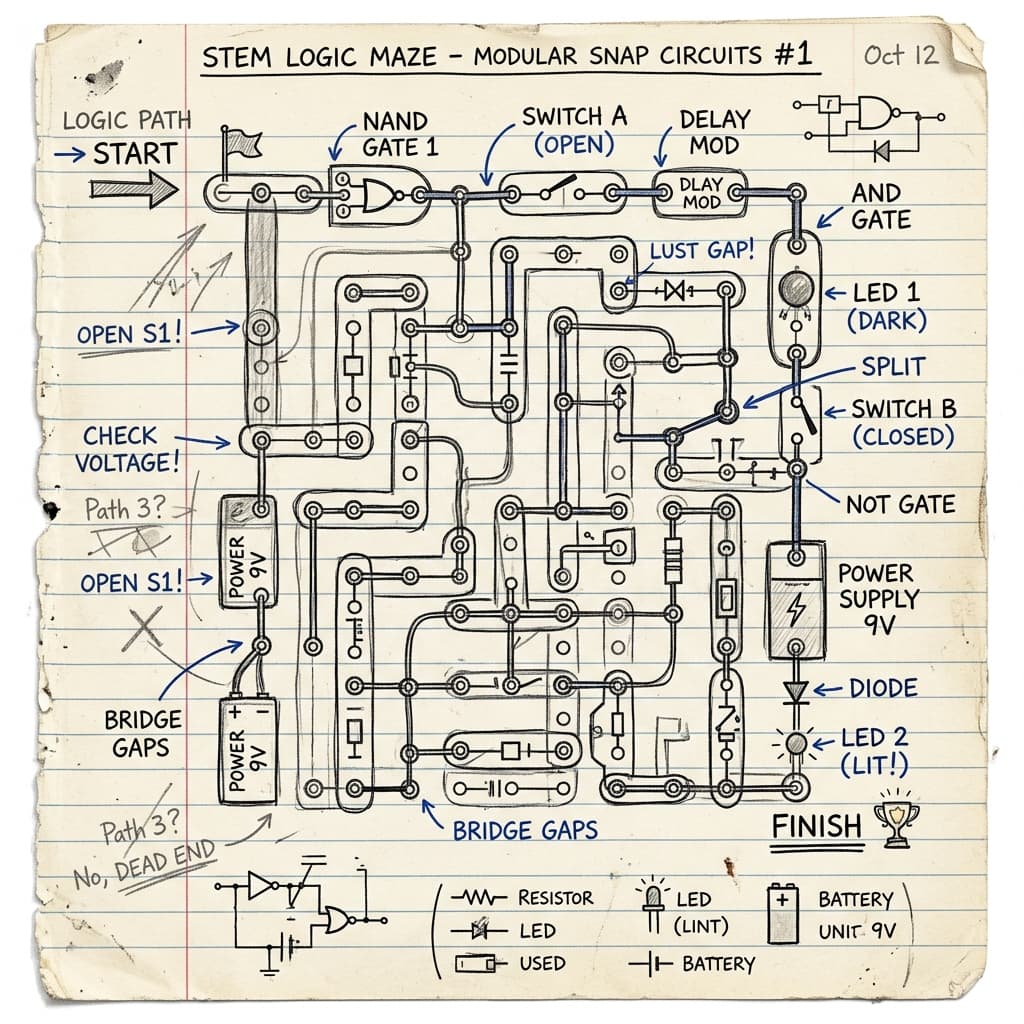 STEM LOGIC MAZE – MODULAR SNAP CIRCUITS #1
Oct 12
LOGIC PATH
START
NAND
GATE 1
SWITCH A
(OPEN)
DELAY
MOD
DLAY
MOD
AND
GATE
LUST GAP!
LED 1
(DARK)
OPEN S1!
SPLIT
SWITCH B
(CLOSED)
CHECK
VOLTAGE!
NOT GATE
Path 3?
POWER
9V
OPEN S1!
POWER
SUPPLY
9V
DIODE
BRIDGE
GAPS
+ –
POWER
9V
LED 2
(LIT!)
Path 3?
No, DEAD END
BRIDGE GAPS
FINISH
RESISTOR
LED
(LINT)
BATTERY
UNIT 9V
LED
USED
BATTERY